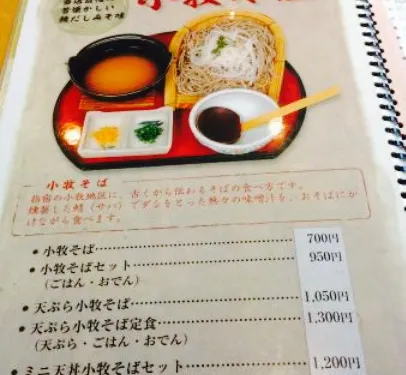 昔懐かしい
鯖だしみそ味
小牧そば
小牧そば
指宿の小牧地区に、古くから伝わるそばの食べ方です。
燻製した鯖（サバ）でダシをとった熱々の味噌汁を、おそばにか
けながら食べます。
● 小牧そば 700円
● 小牧そばセット 950円
（ごはん・おでん）
● 天ぷら小牧そば 1,050円
● 天ぷら小牧そば定食 1,300円
（天ぷら・ごはん・おでん）
● ミニ天丼小牧そばセット 1,200円